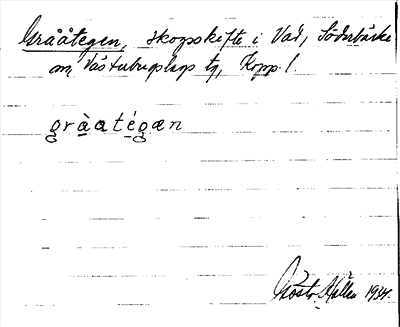 Grååtegen, skogsskifte i Vad, Söderbärke
sn, Västerbergslags tg, Kopp. l.
gràatégæn
Gösta 1934.